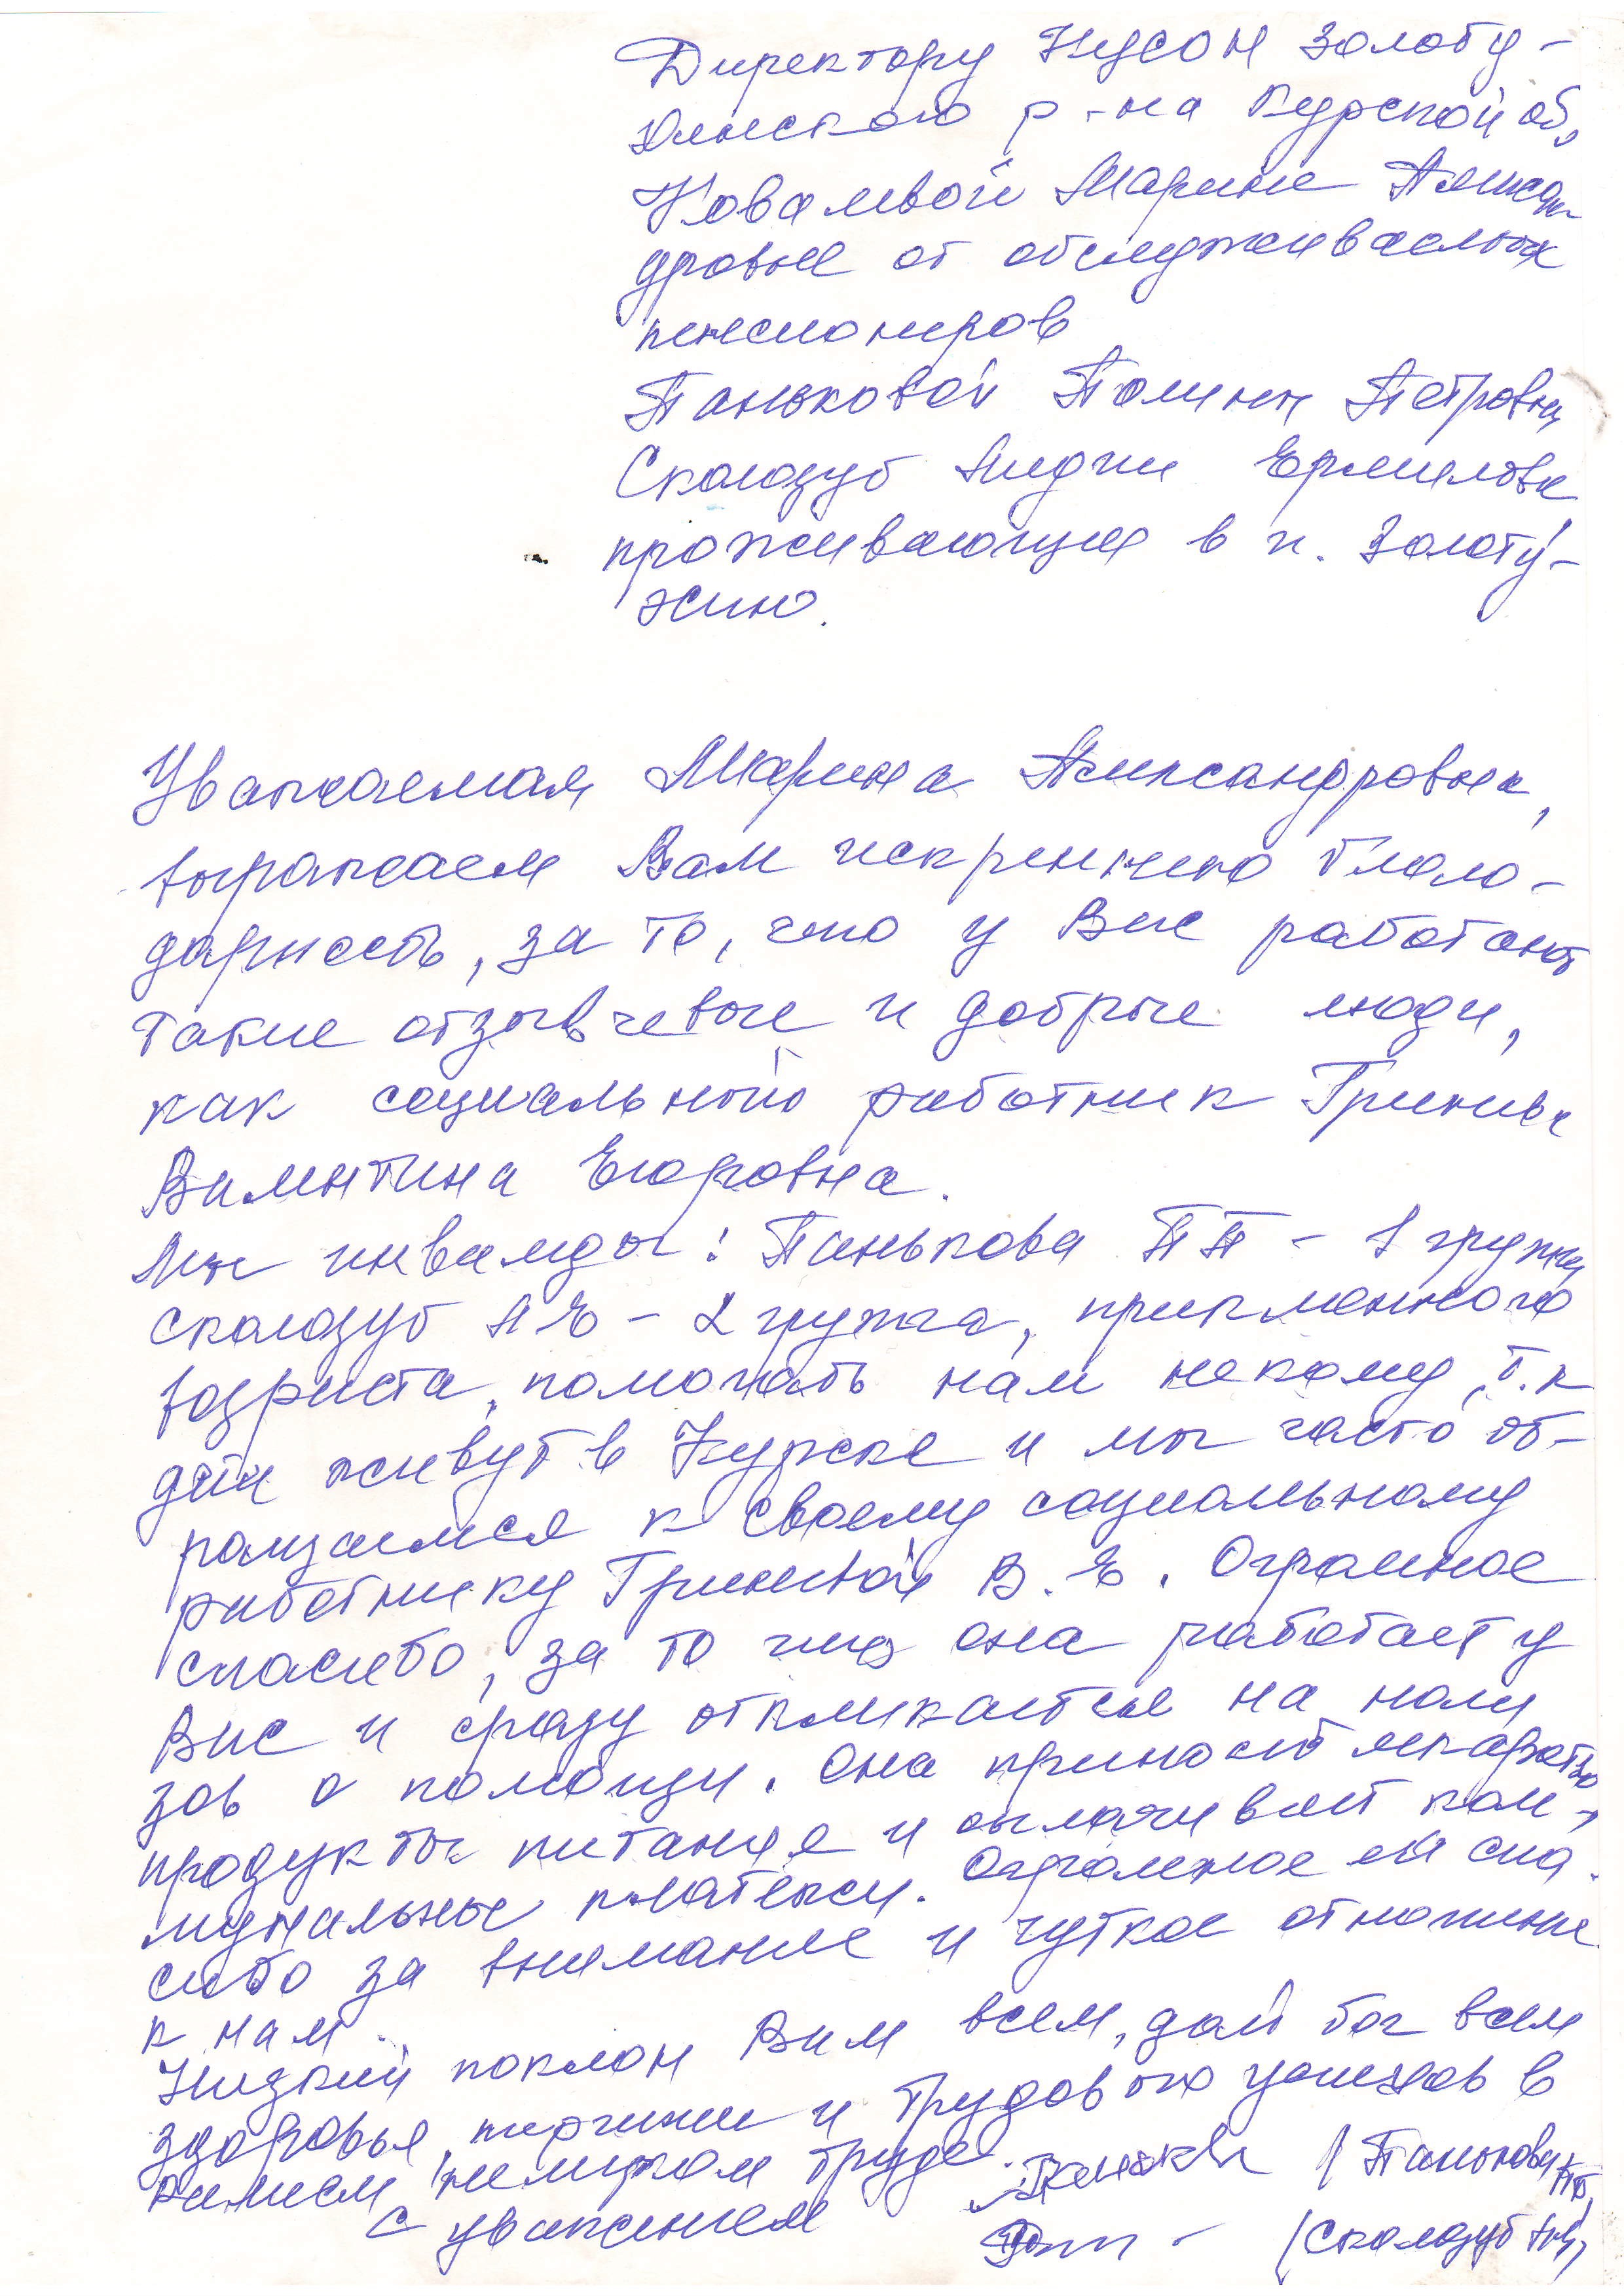 Директору КЦСОН Золоту-
хинского р-на Курской об,
Ковалевой Марине Алексан
дровне от обслуживаемых
пенсионеров
Паньковой Полины Петровны
Сколозуб Лидии Ермиловне
проживающие в п. Золоту-
хино.
Уважаемая Марина Александровна,
выражаем Вам искреннею благо-
дарность, за то, что у Вас работают
такие отзывчевые и добрые люди,
как социальный работник Гринева
Валентина Егоровна.
Мы инвалиды: Панькова ПП - 1 группы
Сколозуб ЛЕ - 2 группа, приклонного
возраста, помогать нам некому, т.к
дети живут в Курске и мы часто об-
ращаемся к своему социальному
работнику Гриневой В.Е. Огромное
спасибо, за то что она работает у
Вас и сразу откликается на наш
зов о помощи. Она приносит лекарства
продукты питания и оплачивает ком-
мунальные платежи. Огромное ей спа-
сибо за внимание и чуткое отношение
к нам.
Низкий поклон Вам всем, дай бог всем
здоровья, терпения и трудовых успехов в
вашем нелегком труде. Панькова (Панькова ПП)
с уважением (Сколозуб ЛЕ)